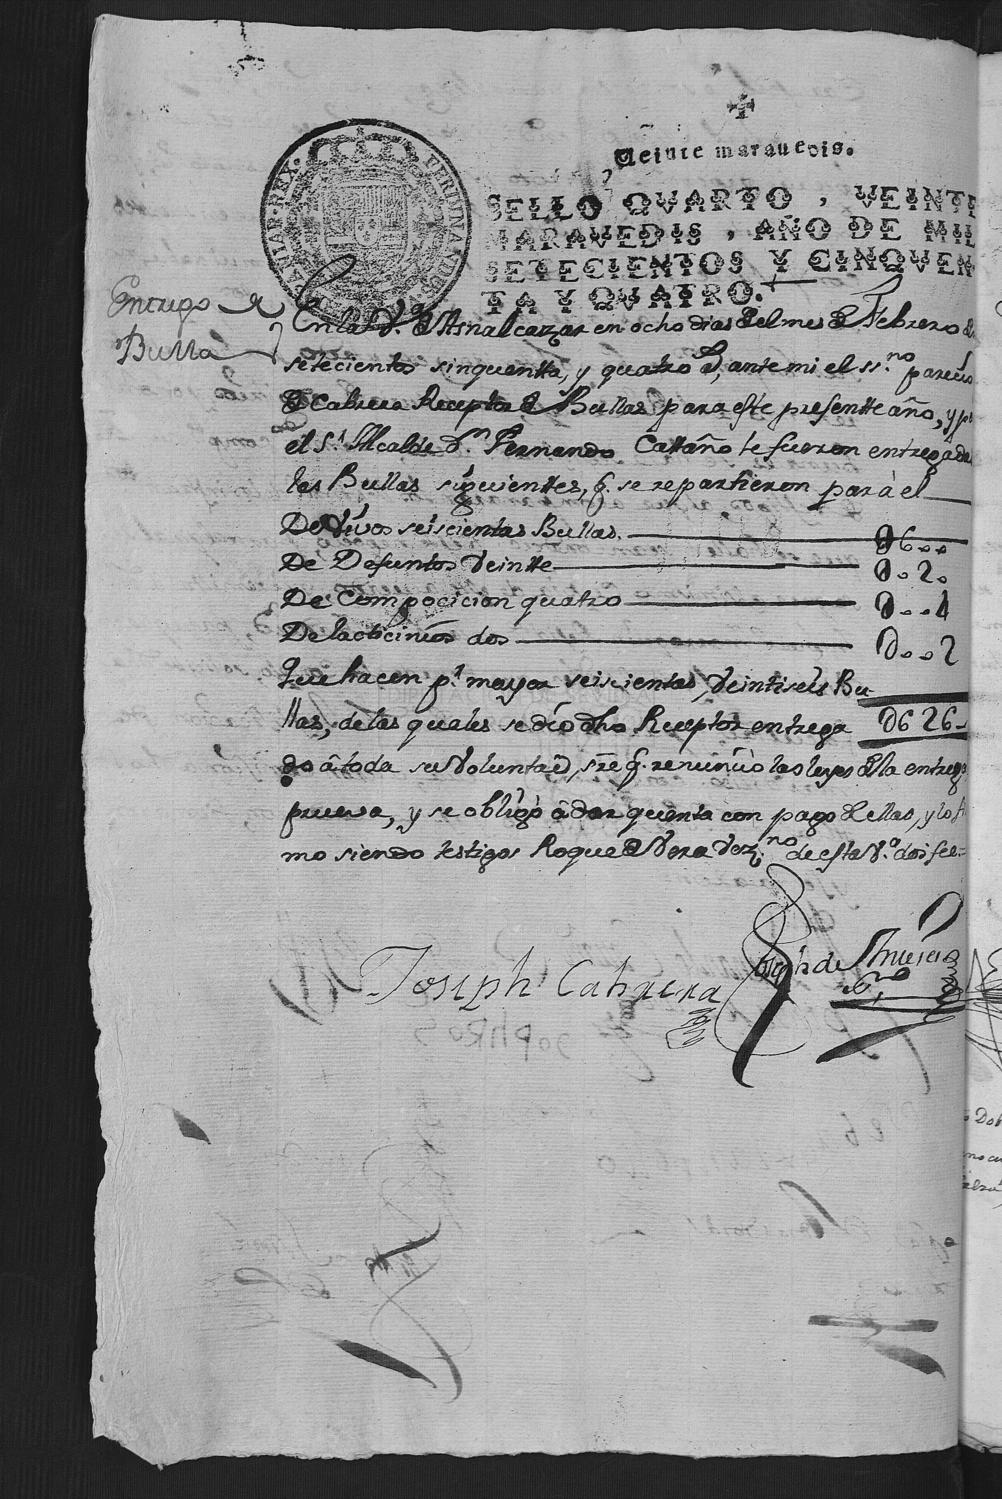 Veinte maravedis.
SELLO QVARTO, VEINTE
MARAVEDIS, AÑO DE MIL
SETECIENTOS Y CINQVEN
TA Y QVATRO.
FERDINANDUS
HISPANIAR·REX·
Entrego de
Bulla
En la Va. de Asnalcazar en ocho dias del mes de Febrero de
setecientos sinquentta, y quatro as, ante mi el ssno. parecio
de Cabrera Receptor de Bullas para este presentte año, y pr
el Sr. Alcalde Dn. Fernando Cattaño le fueron entregadas
las Bullas siguienttes, q. se repartieron para él
De Vivos seiscientas Bullas. 06..
De Defuntos Veintte 0.2.
De Composicion quatro 0..4
De lacticinios dos 0..2
Que hacen pr. mayor seiscientas, Veintiseis Bu
llas, de las quales se dio dho Receptor entrega 0626
do á toda su Voluntad, sre q. renuncio las leyes de la entrega
prueva, y se obligó á dar quenta con pago de ellas, y lo fir
mo siendo testigos Roque de Vera Vezno. de esta Va. doi fee=
Joseph Cabrera
Joseph de